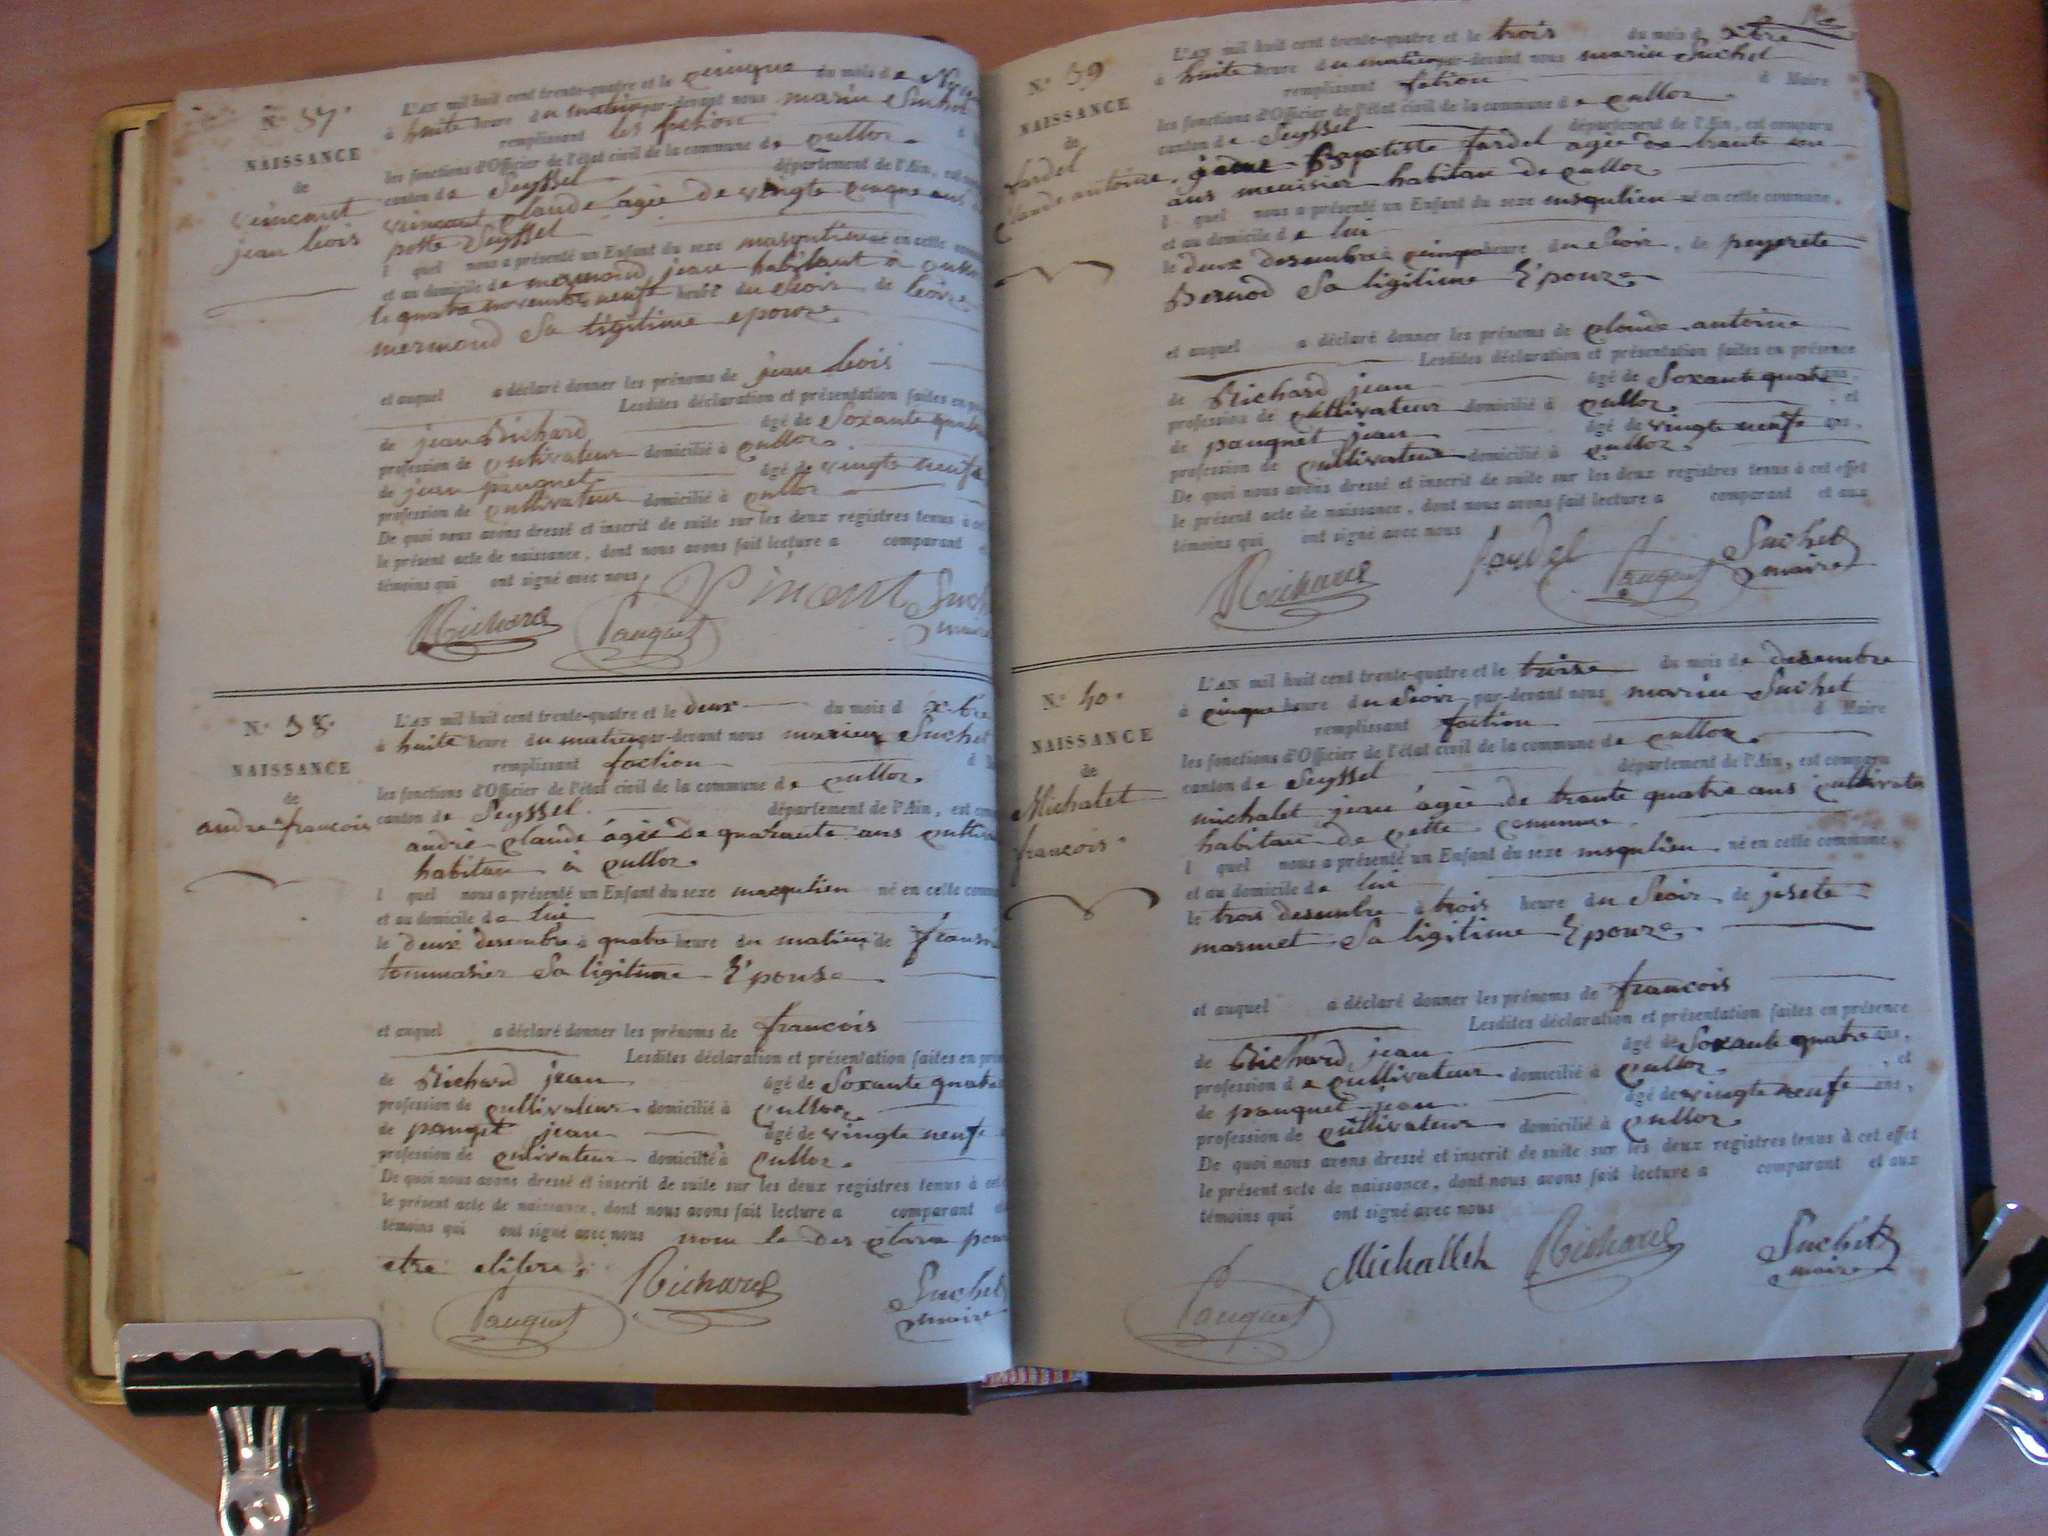 N.° 37.
NAISSANCE
de
vincent
jean lois
L'AN mil huit cent trente-quatre et le cinque du mois de
à huite heure du matin par-devant nous marin Suchet
remplissant les foction
les fonctions d'Officier de l'état civil de la commune de culloz
canton de Seyssel département de l'Ain, est
vincent claude âgée de vingte cinque ans
potte Seyssel
l quel nous a présenté un Enfant du sexe né en cette
et au domicile de mermond jean habitant à culloz
le quatre novembre neufe heure du Seoir de
mermond Sa ligitime epouze
et auquel a déclaré donner les prénoms de jean lois
Lesdites déclaration et présentation faites en
de jean Richard âgé de Soxante quatre
profession de cultivateur domicilié à culloz
de jean pauquet âgé de vingte neufe
profession de cultivateur domicilié à culloz
De quoi nous avons dressé et inscrit de suite sur les deux registres tenus à cet
le présent acte de naissance, dont nous avons fait lecture a comparant
témoins qui ont signé avec nous
Vincent
Richard Pauquet Suchet
maire
N.° 38.
NAISSANCE
de
andre francois
L'AN mil huit cent trente-quatre et le deux du mois d xbre
à huite heure du matin par-devant nous marien Suchet
remplissant foction
les fonctions d'Officier de l'état civil de la commune de culloz.
canton de Seyssel. département de l'Ain, est
andré claude âgié de quarante ans
habitan à culloz.
l quel nous a présenté un Enfant du sexe macqulien né en cette
et au domicile de lui
le deux desembre à quatre heure du matien de
tommasier Sa ligitime Epouse
et auquel a déclaré donner les prénoms de francois
Lesdites déclaration et présentation faites en
de Richard jean âgé de Soxante quatre
profession de cultivateur domicilié à culloz
de pauqet jean âgé de vingte neufe
profession de cultivateur domicilié à culloz.
De quoi nous avons dressé et inscrit de suite sur les deux registres tenus à cet
le présent acte de naissance, dont nous avons fait lecture a comparant
témoins qui ont signé avec nous nom le des clara pour
etre elitere
Richard
Pauquet Suchet
maire
N.° 39
NAISSANCE
de
fardel
claude antoine
L'AN mil huit cent trente-quatre et le trois du mois d xbre
à huite heure du matien par-devant nous marin Suchet
remplissant fotion d Maire
les fonctions d'Officier de l'état civil de la commune de culloz.
canton de Seyssel département de l'Ain, est comparu
Baptiste fardel agié de trante un
ans meunsier habitan de culloz
l quel nous a présenté un Enfant du sexe msqulien né en cette commune,
et au domicile de lui
le deux desembre à cinque heure du Seoir, de peyrete
Bernod Sa ligitime Epouze
et auquel a déclaré donner les prénoms de cloude antoine
Lesdites déclaration et présentation faites en présence
de Richard jean âgé de Soxante quatre ans,
profession de cultivateur domicilié à culloz. et
de pauquet jean âgé de vingte neufe ans,
profession de cultivateur domicilié à culloz.
De quoi nous avons dressé et inscrit de suite sur les deux registres tenus à cet effet
le présent acte de naissance, dont nous avons fait lecture a comparant et aux
témoins qui ont signé avec nous
Richard fardel Pauquet Suchet
maire
N.° 40.
NAISSANCE
de
Michalet
francois
L'AN mil huit cent trente-quatre et le troise du mois de desembre
à cinque heure du Seoir par-devant nous marin Suchet
remplissant foction d Maire
les fonctions d'Officier de l'état civil de la commune de culloz.
canton de Seyssel département de l'Ain, est comparu
michalet jean âgié de trante quatre ans cultivateur
habitan de cette commune
l quel nous a présenté un Enfant du sexe msqulien né en cette commune,
et au domicile de lui
le trois desembre à trois heure du Seoir de josete
marmet Sa ligitime Epouze.
et auquel a déclaré donner les prénoms de francois
Lesdites déclaration et présentation faites en présence
de Richard, jean âgé de Soxante quatre ans,
profession de cultivateur domicilié à culloz. et
de pauquet jean âgé de vingte neufe ans,
profession de cultivateur domicilié à culloz
De quoi nous avons dressé et inscrit de suite sur les deux registres tenus à cet effet
le présent acte de naissance, dont nous avons fait lecture a comparant et aux
témoins qui ont signé avec nous
Pauquet Michallet Richard Suchet
maire